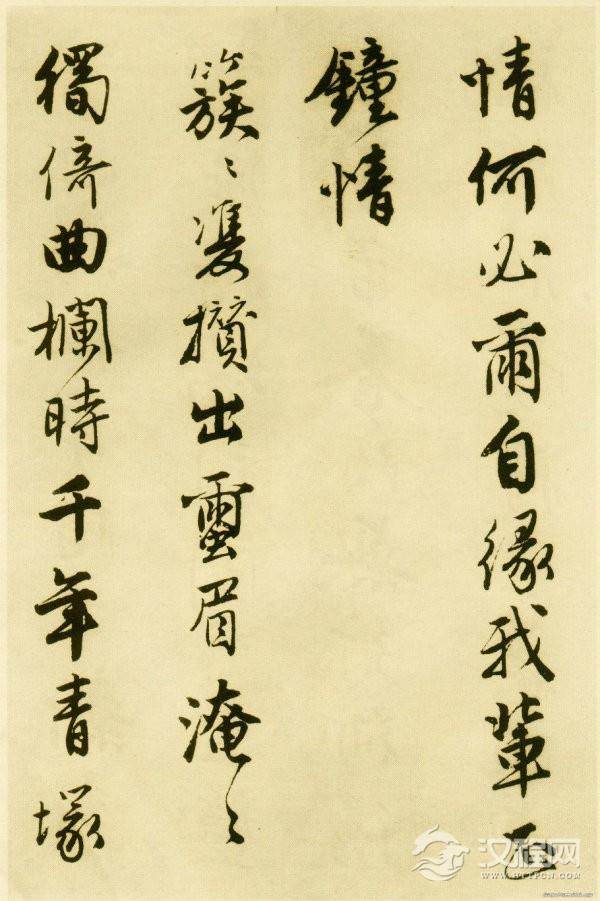 情何必爾自緣我輩正
鐘情
簇〻雙攢出繭眉淹〻
獨倚曲欄時千年青塚
汉程网
WWW.HTTPCN.COM